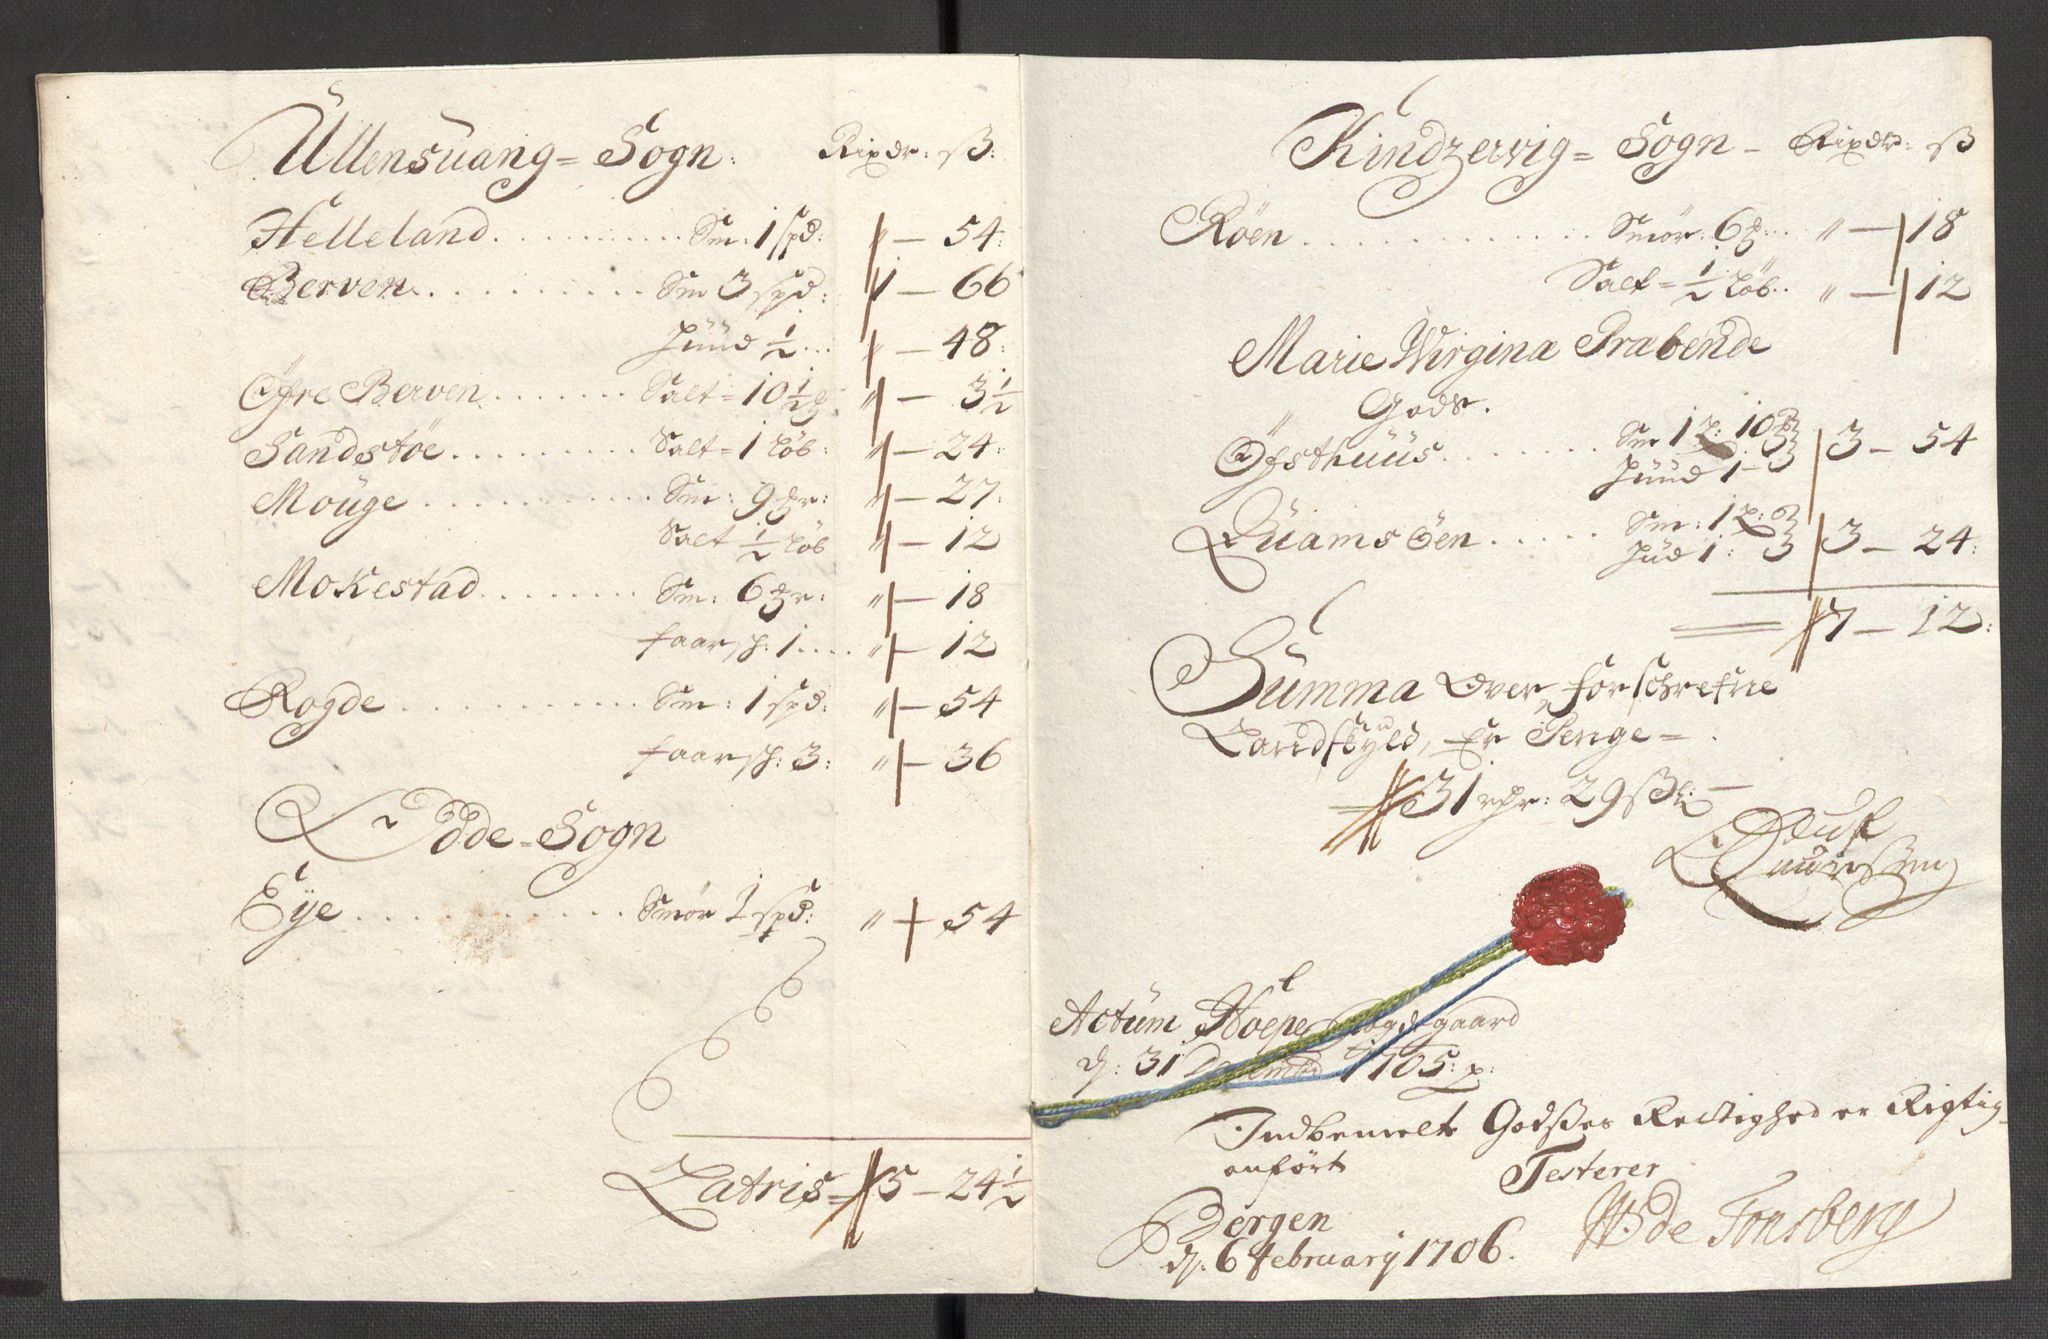 Ullensuang = Sogn: Rixdr: ß:
Helleland . . . . . . . . . . Sm: 1 spd: " — 54:
Berven . . . . . . . . . Sm 3 spd: 1 — 66
Huud ½ ... " — 48:
Øfre Berven . . . . . . . Salt = 10½ " — 3½
Sandstøe . . . . . . . . . Salt = 1 Løb: " — 24:
Mouge . . . . . . . . . . . Sm: 9 mr: " — 27:
Salt ½ Løb " — 12
Mokestad . . . . . . . . Sm: 6 mr: " — 18
faarsk: 1 . . . . " — 12
Rogde . . . . . . . . . . . . Sm: 1 spd: " — 54
faarsk: 3: " — 36
Odde = Sogn
Eye . . . . . . . . . . . . Smør 1 spd: " — 54
Latris = 5 — 24½
Kindzervig = Sogn — Rixdr: ß
Røen . . . . . . . . . . . . . Smør: 6 ... " — 18
Salt = ½ Løb.. " — 12
Marie Wirgina Præbende
Gods.
Øfsthuus . . . . . . . Sm 1 L: 10
Huud 1 — 3 — 54
Quamsøen . . . . . Sm: 1 L:
Hud 1: 3 — 24:
7 — 12:
Summa Over forschrefne
Landskyld, Er Penge = .
31 rdr: 29 ß —
Oluf
Lauritzen
Actum Hoepe Fogdegaard
d: 31 December 1705: p:
Indbemelte Godßes Rettighed er Rigtig
anført Testerer
Bergen
d. 6 february 1706. WB de Tonsberg